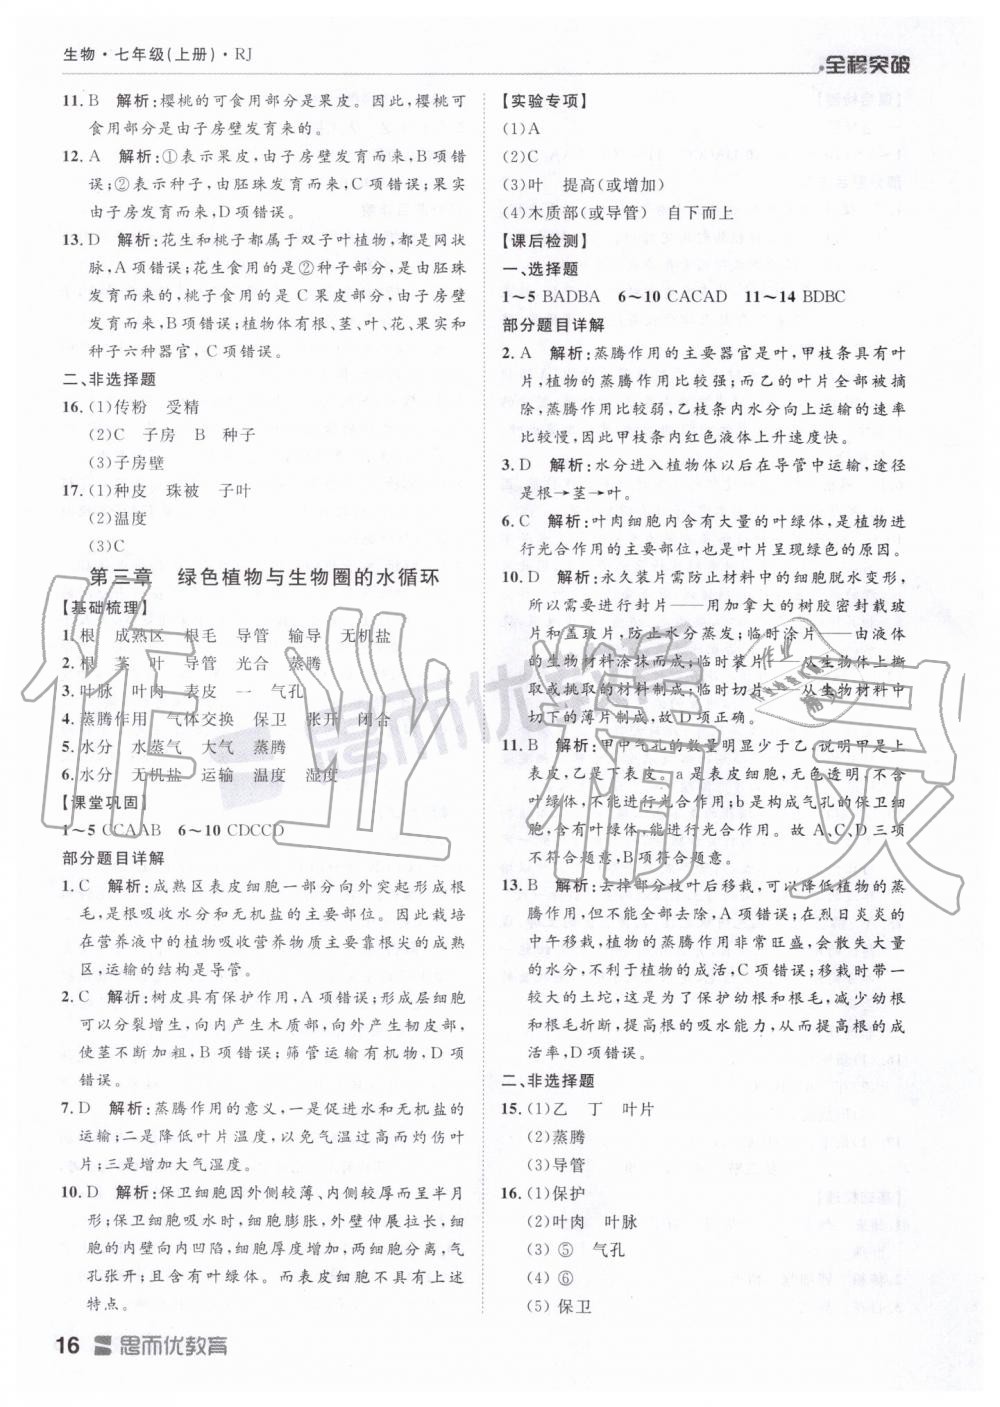 生物·七年级(上册)·RJ
全程突破
11. B 解析:樱桃的可食用部分是果皮。因此,樱桃可
食用部分是由子房壁发育来的。
12. A 解析:①表示果皮,由子房壁发育而来,B项错
误;②表示种子,由胚珠发育而来,C项错误;果实
由子房发育而来,D项错误。
13. D 解析:花生和桃子都属于双子叶植物,都是网状
脉,A项错误;花生食用的是②种子部分,由胚珠
发育而来的,桃子食用的是C果皮部分,由子房壁
发育而来,B项错误;植物体有根、茎、叶、花、果实和
种子六种器官,C项错误。
二、非选择题
16. (1)传粉 受精
(2)C 子房 B 种子
(3)子房壁
17. (1)种皮 珠被 子叶
(2)温度
(3)C
第三章 绿色植物与生物圈的水循环
【基础梳理】
1. 根 成熟区 根毛 导管 输导 无机盐
2. 根 茎 叶 导管 光合 蒸腾
3. 叶脉 叶肉 表皮 一 气孔
4. 蒸腾作用 气体交换 保卫 张开 闭合
5. 水分 水蒸气 大气 蒸腾
6. 水分 无机盐 运输 温度 湿度
【课堂巩固】
1～5 CCAAB 6～10 CDCCD
部分题目详解
1. C 解析:成熟区表皮细胞一部分向外突起形成根
毛,是根吸收水分和无机盐的主要部位。因此栽培
在营养液中的植物吸收营养物质主要靠根尖的成熟
区,运输的结构是导管。
2. C 解析:树皮具有保护作用,A项错误;形成层细胞
可以分裂增生,向内产生木质部,向外产生韧皮部,
使茎不断加粗,B项错误;筛管运输有机物,D项
错误。
7. D 解析:蒸腾作用的意义,一是促进水和无机盐的
运输;二是降低叶片温度,以免气温过高而灼伤叶
片;三是增加大气湿度。
10. D 解析:保卫细胞因外侧较薄、内侧较厚而呈半月
形;保卫细胞吸水时,细胞膨胀,外壁伸展拉长,细
胞的内壁向内凹陷,细胞厚度增加,两细胞分离,气
孔张开;且含有叶绿体。而表皮细胞不具有上述
特点。
【实验专项】
(1)A
(2)C
(3)叶 提高(或增加)
(4)木质部(或导管) 自下而上
【课后检测】
一、选择题
1～5 BADBA 6～10 CACAD 11～14 BDBC
部分题目详解
2. A 解析:蒸腾作用的主要器官是叶,甲枝条具有叶
片,植物的蒸腾作用比较强;而乙的叶片全部被摘
除,蒸腾作用比较弱,乙枝条内水分向上运输的速率
比较慢,因此甲枝条内红色液体上升速度快。
3. D 解析:水分进入植物体以后在导管中运输,途径
是根→茎→叶。
6. C 解析:叶肉细胞内含有大量的叶绿体,是植物进
行光合作用的主要部位,也是叶片呈现绿色的原因。
10. D 解析:永久装片需防止材料中的细胞脱水变形,
所以需要进行封片——用加拿大的树胶密封载玻
片和盖玻片,防止水分蒸发;临时涂片——由液体
的生物材料涂抹而成;临时装片——从生物体上撕
取或挑取的材料制成;临时切片——从生物材料中
切下的薄片制成,故D项正确。
11. B 解析:甲中气孔的数量明显少于乙,说明甲是上
表皮,乙是下表皮。a是表皮细胞,无色透明,不含
叶绿体,不能进行光合作用;b是构成气孔的保卫细
胞,含有叶绿体,能进行光合作用。故A、C、D三项
不符合题意,B项符合题意。
13. B 解析:去掉部分枝叶后移栽,可以降低植物的蒸
腾作用,但不能全部去除,A项错误;在烈日炎炎的
中午移栽,植物的蒸腾作用非常旺盛,会散失大量
的水分,不利于植物的成活,C项错误;移栽时带一
较大的土坨,这是为了保护幼根和根毛,减少幼根
和根毛折断,提高根的吸水能力,从而提高移栽的成
活率,D项错误。
二、非选择题
15. (1)乙 丁 叶片
(2)蒸腾
(3)导管
16. (1)保护
(2)叶肉 叶脉
(3)⑤ 气孔
(4)⑥
(5)保卫
16 思而优教育
作业精灵
思而优教育